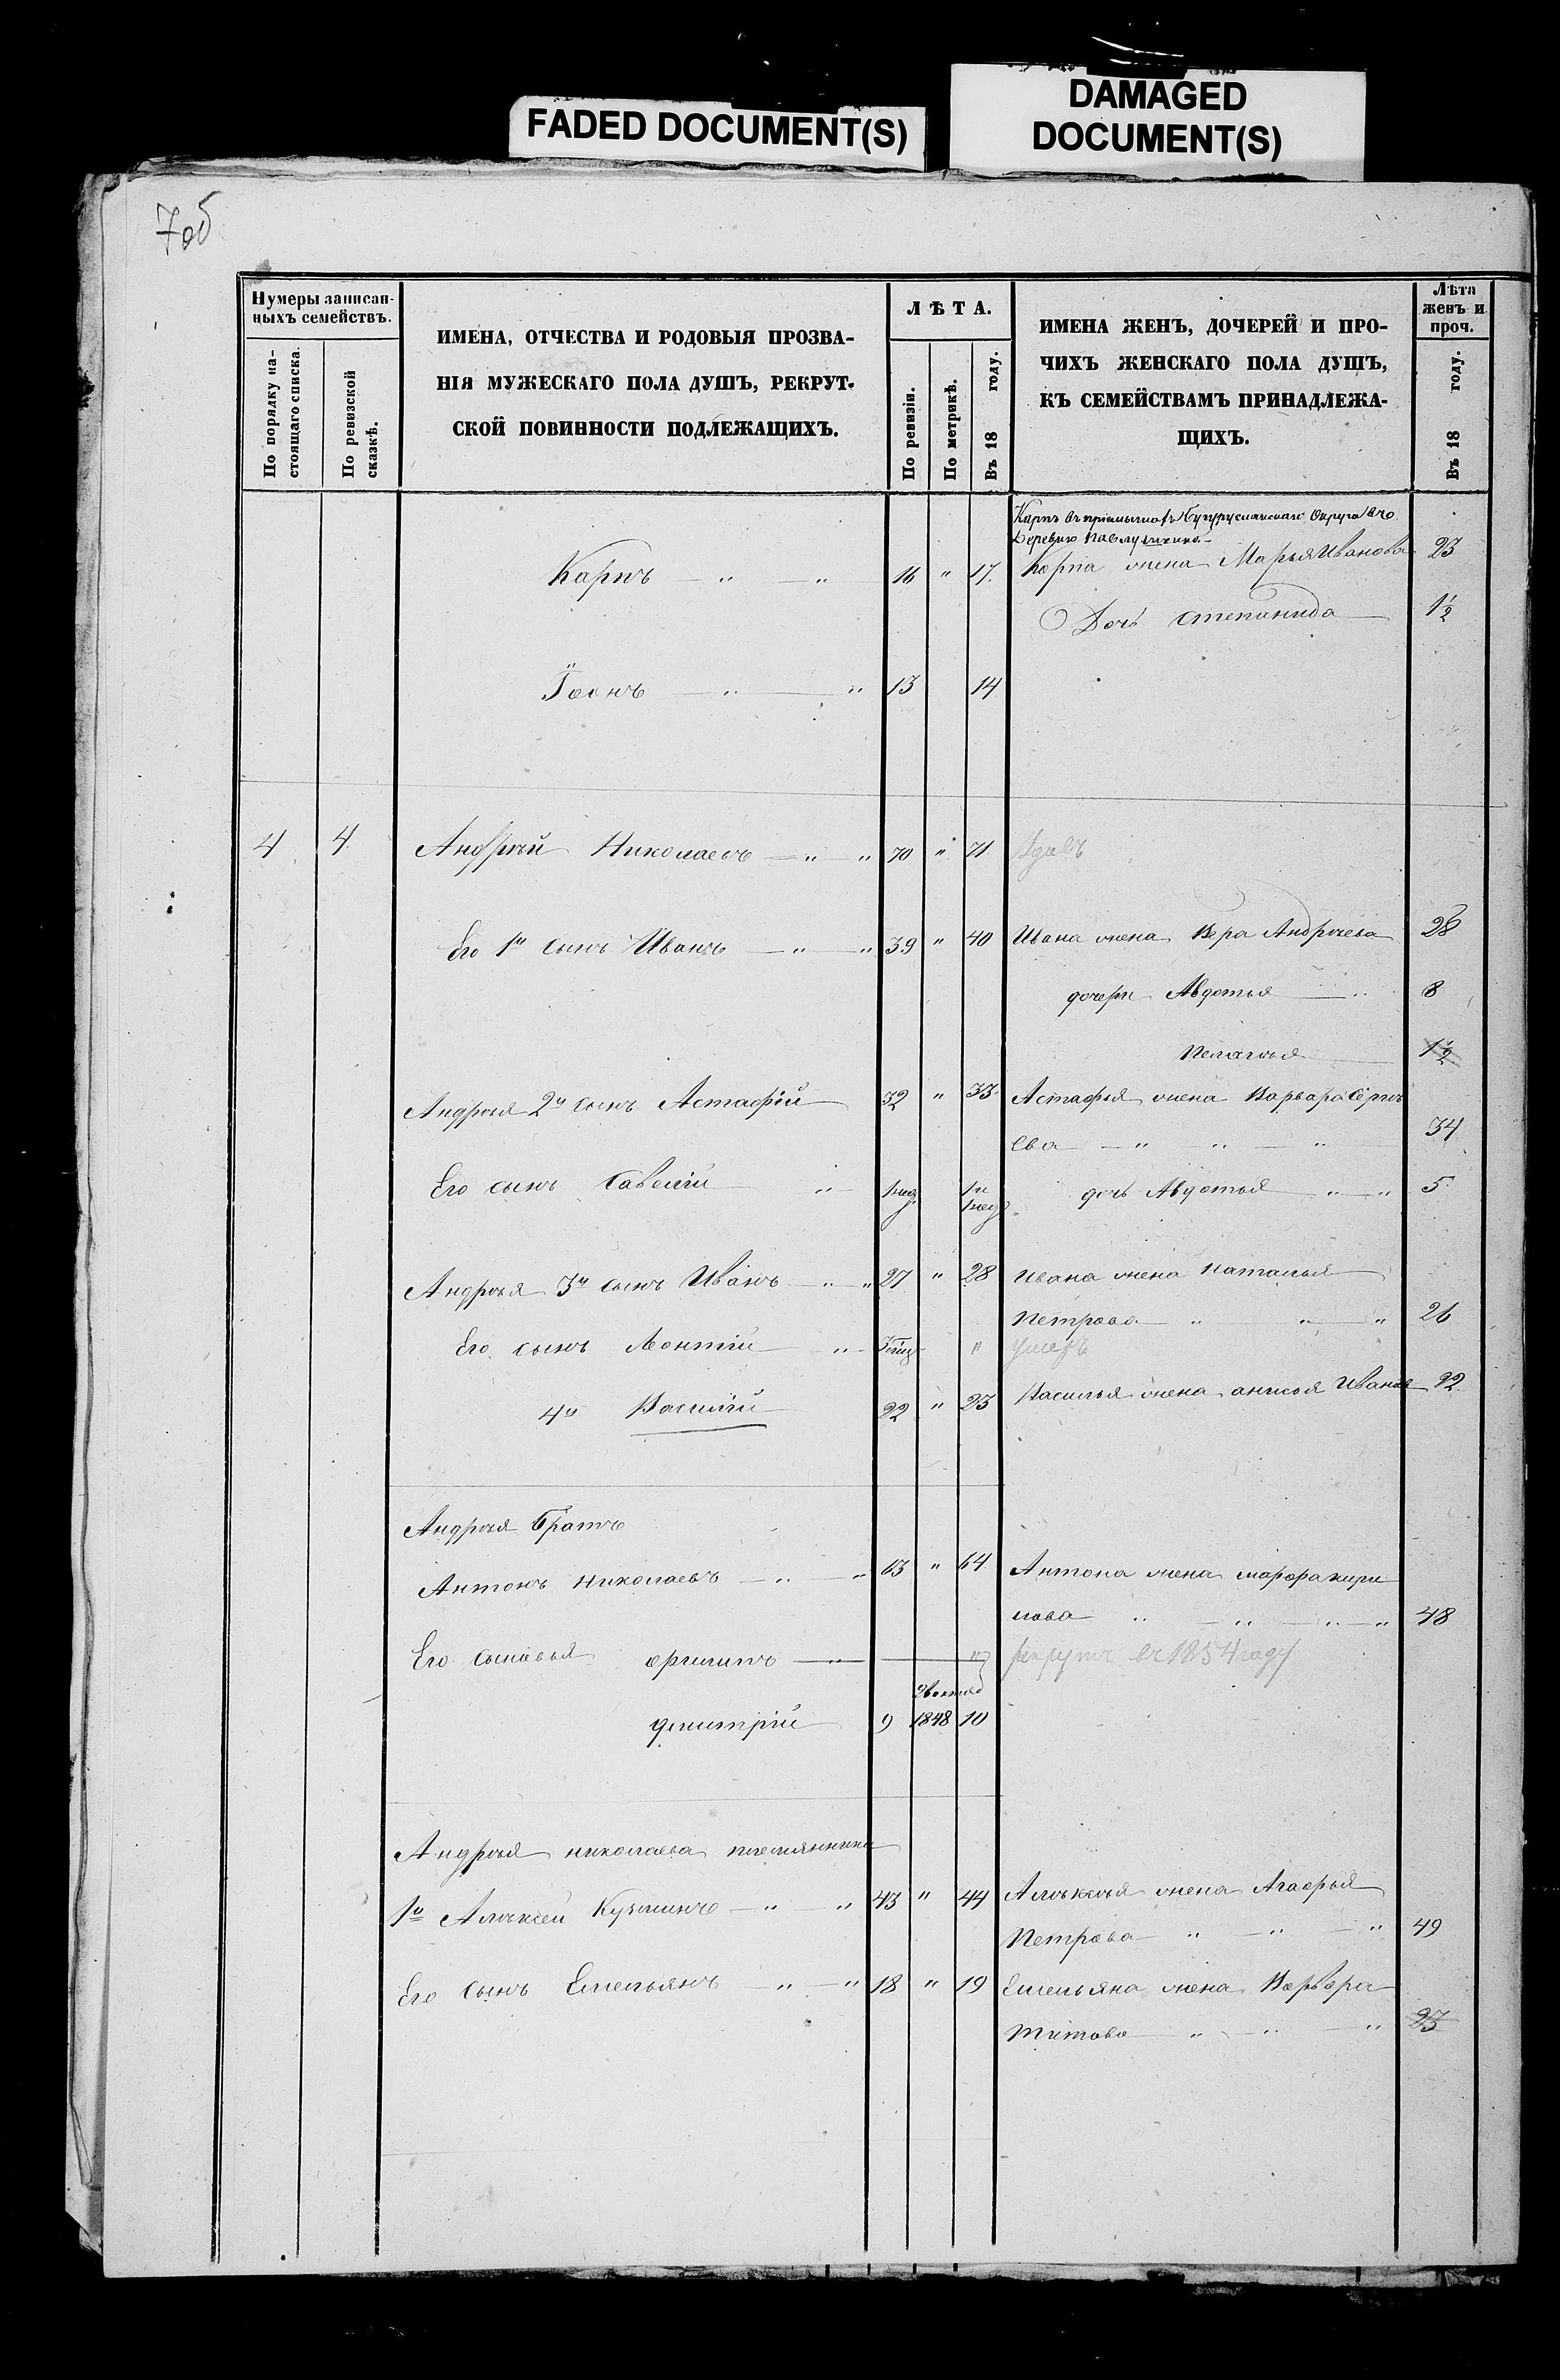 FADED DOCUMENT(S)
DAMAGED
DOCUMENT(S)
7об
Нумеры записан-
ныхъ семействъ.
По порядку на-
стоящаго списка.
По ревизской
сказкѣ.
ИМЕНА, ОТЧЕСТВА И РОДОВЫЯ ПРОЗВА-
НІЯ МУЖЕСКАГО ПОЛА ДУШЪ, РЕКРУТ-
СКОЙ ПОВИННОСТИ ПОДЛЕЖАЩИХЪ.
ЛѢТА.
По ревизіи.
По метрикѣ.
Въ 18 году.
ИМЕНА ЖЕНЪ, ДОЧЕРЕЙ И ПРО-
ЧИХЪ ЖЕНСКАГО ПОЛА ДУШЪ,
КЪ СЕМЕЙСТВАМЪ ПРИНАДЛЕЖА-
ЩИХЪ.
Лѣта
женъ и
проч.
Въ 18 году.
Карпъ въ Бугурусланскаго Округа въ
Деревню
Карпъ — " — " 16 " 17. Карпа жена Марья Иванова 23
Дочь Степанида — 1½
— " — " 13 14
4 4 Андрѣй Николаевъ — " — " 70 " 71 Вдовъ
Его 1й сынъ Иванъ — " — " 39 " 40 Ивана жена Вера Андрѣева 28
дочери Авдотья — " 8
Пелагѣя — 1½
Андрѣя 2й сынъ Астафій — 32 " 33 Астафья жена Варвара Сергѣ
ева — " — " — " 34
Его сынъ Савелій " — дочь Авдотья — " — " 5
Андрѣя 3й сынъ Иванъ — " — " 27 " 28 Ивана жена Наталья —
Петрова — " — " — " 26
Его сынъ Леонтій — " — " умеръ
4й Василій 22 " 23 Василья жена анисья Иванов 22
Андрѣя братъ
Антонъ Николаевъ — " — " 63 " 64 Антона жена марфа кири
лова — " — " — " — " 48
Его сыновья филипъ — " — " рекрутъ въ 1854 году
дмитрій — 9 1848 10
Андрѣя николаева племянники
1й Алѣксѣй Кузминъ — " — " 43 " 44 Алѣксѣя жена Агафья —
Петрова — " — " — " 49
Его сынъ Емельянъ — " — " 18 " 19 Емельяна жена Варвара —
Титова — " — " — " 23